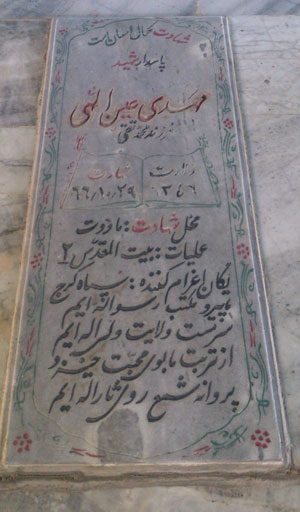 شهادت کمال انسان است
پاسدار شهید
مهدی عین الهی
فرزند محمد تقی
ولادت شهادت
۱۳۴۶ ۶۶/۱۰/۲۹
محل شهادت: ماووت
عملیات: بیت المقدس ۲
یگان اعزام کننده: سپاه کرج
ما پیرو مکتب رسول اله ایم
سرمست ولایت ولی اله ایم
از تربت ما بوی محبت خیزد
پروانه شمع روی ثاراله ایم